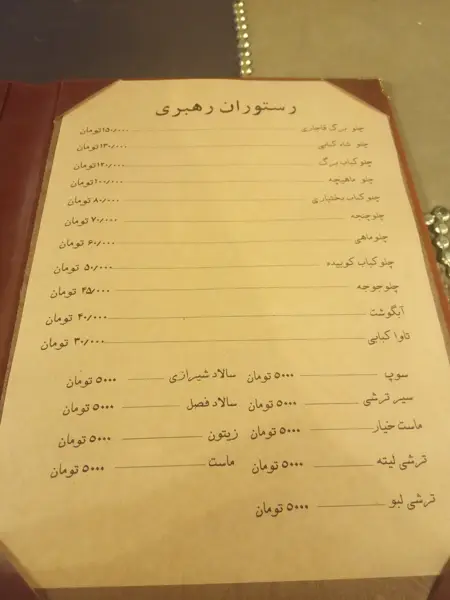 رستوران رهبری
چلو برگ قاجاری ۱۵۰/۰۰۰ تومان
چلو شاه کبابی ۱۳۰/۰۰۰ تومان
چلوکباب برگ ۱۲۰/۰۰۰ تومان
چلو ماهیچه ۱۰۰/۰۰۰ تومان
چلوکباب بختیاری ۸۰/۰۰۰ تومان
چلوچنجه ۷۰/۰۰۰ تومان
چلوماهی ۶۰/۰۰۰ تومان
چلوکباب کوبیده ۵۰/۰۰۰ تومان
چلوجوجه ۴۵/۰۰۰ تومان
آبگوشت ۴۰/۰۰۰ تومان
تاوا کبابی ۳۰/۰۰۰ تومان
سوپ ۵۰۰۰ تومان سالاد شیرازی ۵۰۰۰ تومان
سیر ترشی ۵۰۰۰ تومان سالاد فصل ۵۰۰۰ تومان
ماست خیار ۵۰۰۰ تومان زیتون ۵۰۰۰ تومان
ترشی لیته ۵۰۰۰ تومان ماست ۵۰۰۰ تومان
ترشی لبو ۵۰۰۰ تومان